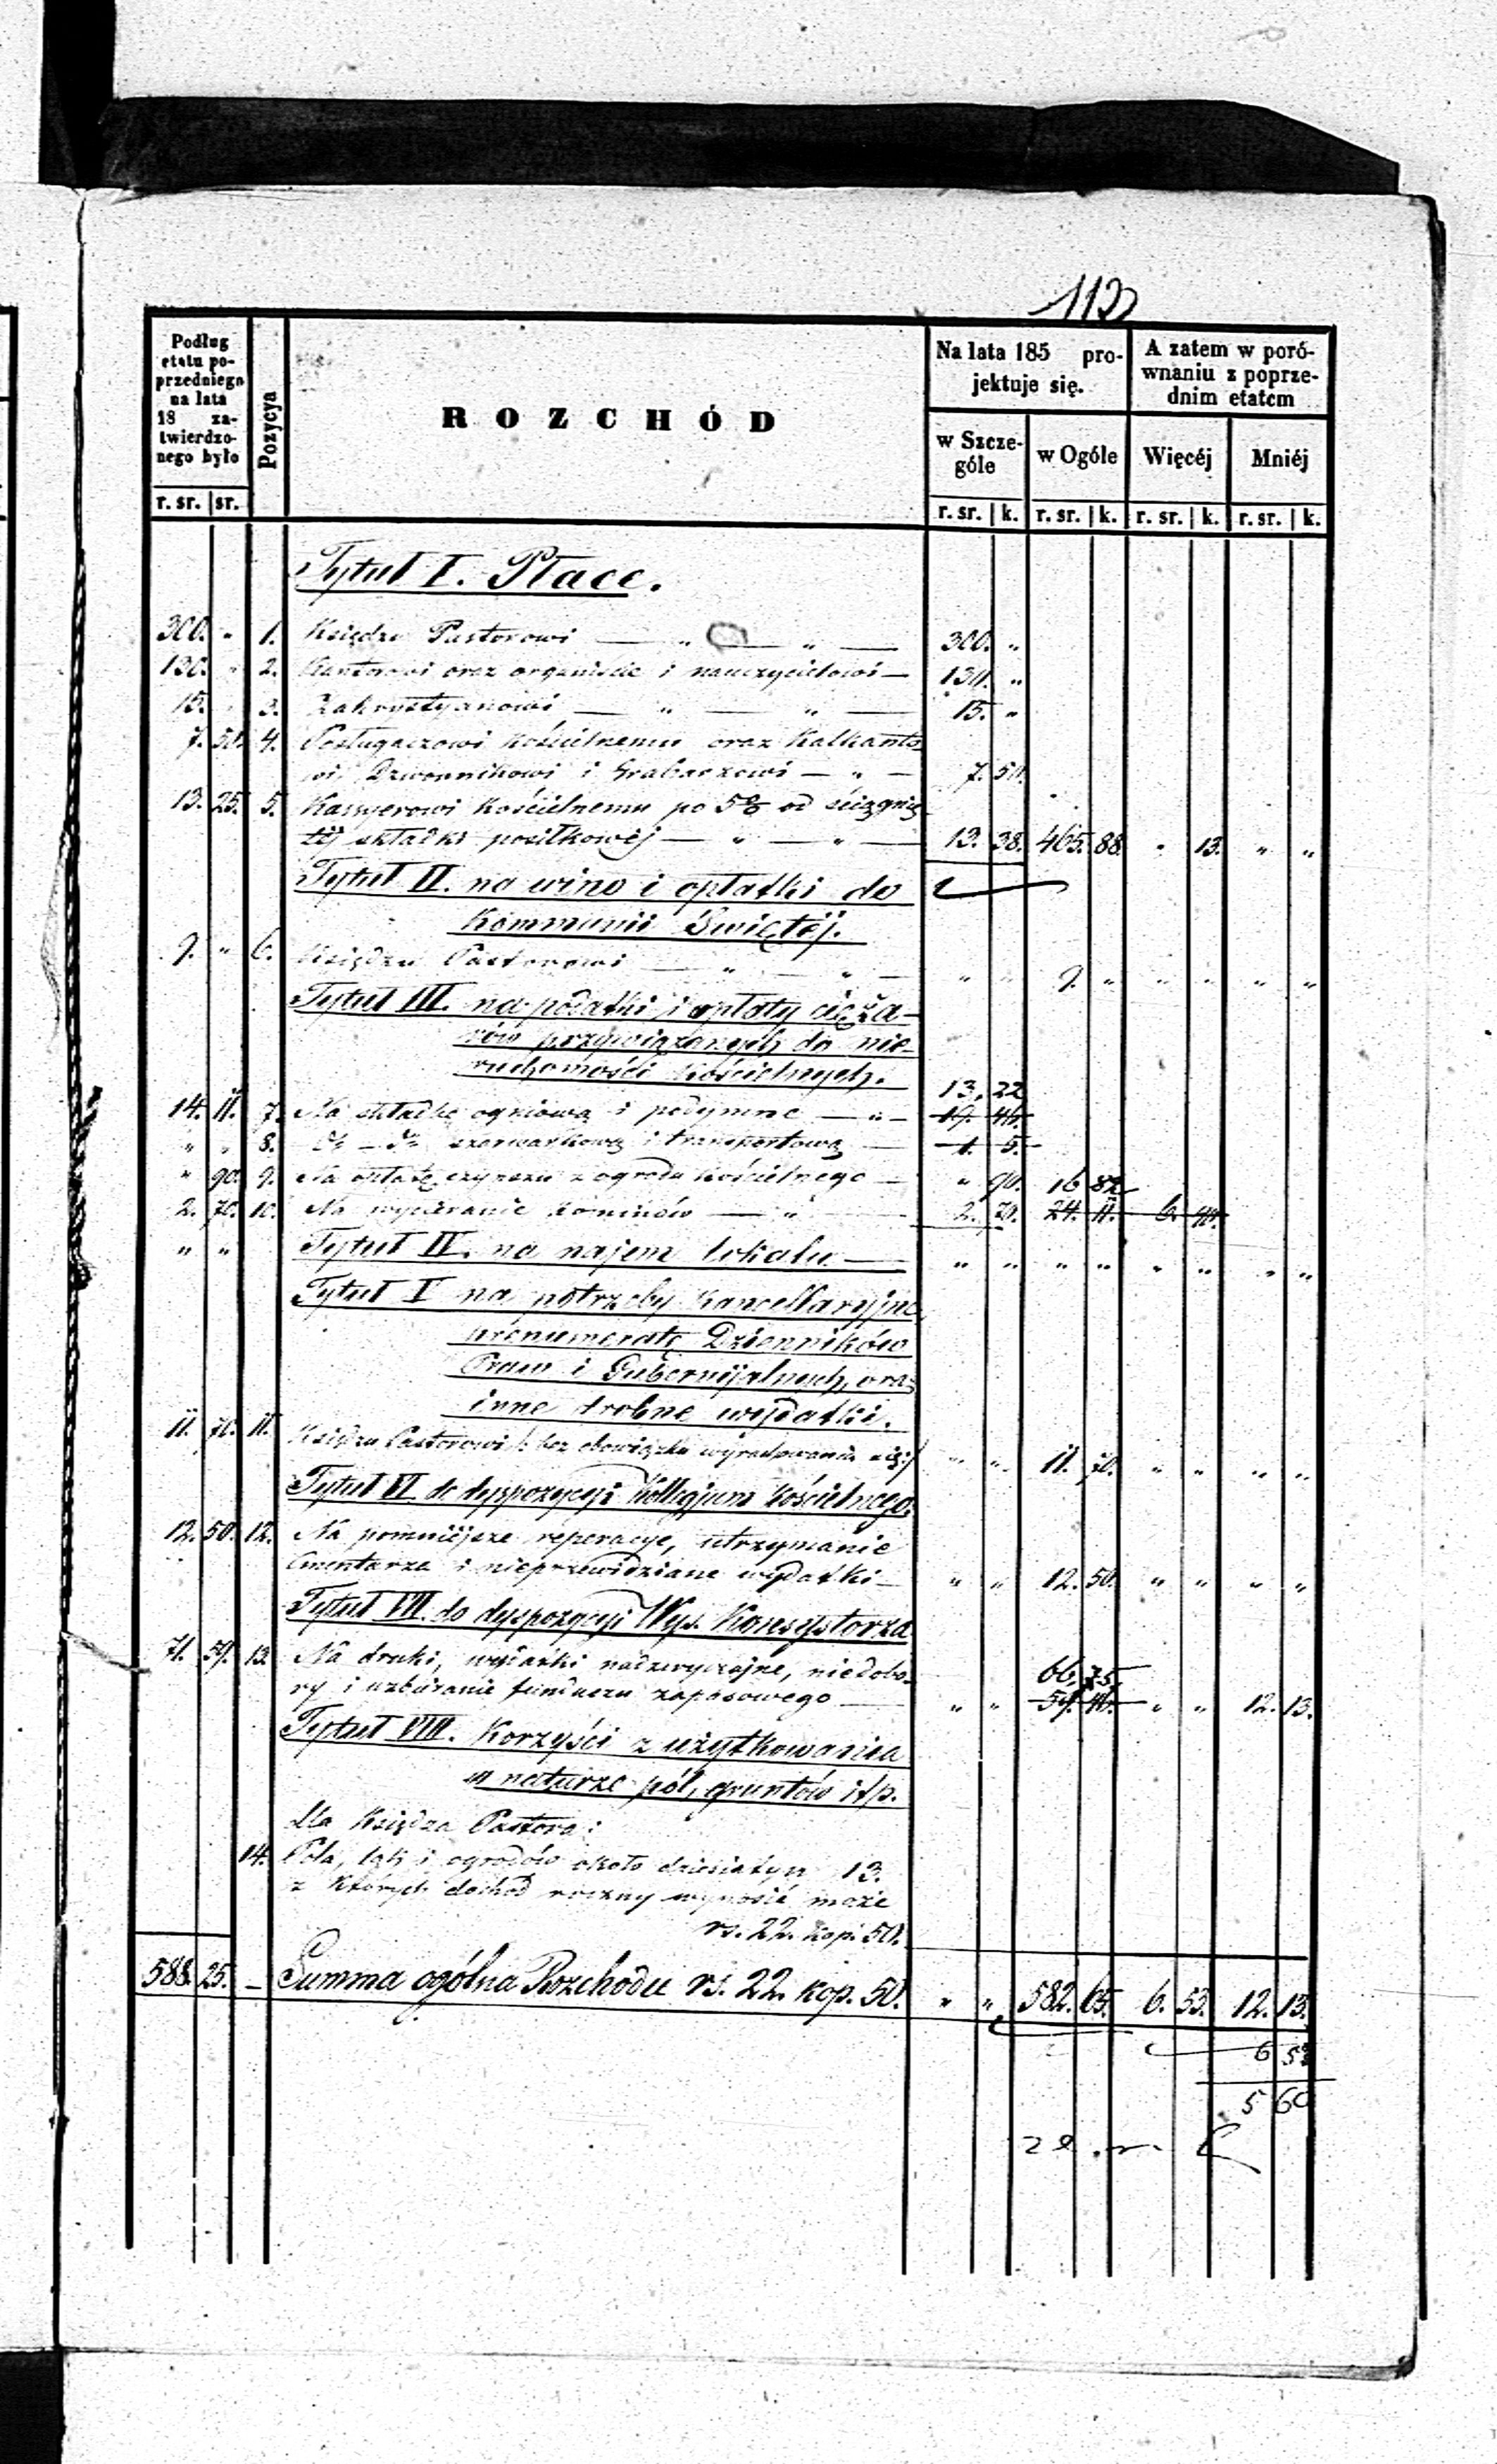 112
Podług etatu poprzedniego na lata 18 zatwierdzonego było
Pozycya
ROZCHÓD
Na lata 185 projektuje się.
A zatem w porównaniu z poprzednim etatem
w Szczególe
w Ogóle
Więcéj
Mniéj
r. sr. | sr.
r. sr. | k. | r. sr. | k. | r. sr. | k. | r. sr. | k.
Tytuł I. Płace.
300. " 1. Księdzu Pastorowi — " — " — 300. "
130. " 2. Kantorowi oraz organiście i nauczycielowi — 130. "
15. " 3. Zakrystyanowi — " — " — 15. "
7. 50. 4. Posługaczowi kościelnemu oraz Kalkanto-
wi, Dzwonnikowi i Grabarzowi — " — 7. 50.
13. 25. 5. Kassyerowi Kościelnemu po 5% od ściągnię-
téj składki posiłkowéj — " — " — 13. 38. 465. 88. " 13. " "
Tytuł II. na wino i opłatki do
Kommunii Świętéj.
9. " 6. Księdzu Pastorowi — " — " — " " 9. " " " " "
Tytuł III. na podatki i opłaty cięża-
rów przywiązanych do nie-
ruchomości kościelnych.
13. 22
14. 11. 7. Na składkę ogniową i podymne — " — 19. 46.
" " 8. dto — dto szarwarkową i transportową — 1. 5.
" 90. 9. Na opłatę czynszu z ogrodu kościelnego — " 90. 16 82
2. 70. 10. Na wycieranie kominów — " — 2. 70. 24. 11. 6. 40.
" " Tytuł IV. na najem lokalu — " " " " " " " "
Tytuł V na potrzeby kancellaryjne
prenumeratę Dzienników
Praw i Gubernijalnych, oraz
inne drobne wydatki.
11. 70. 11. Księdzu Pastorowi /: bez obowiązku wyrachowania się :/ " " 11. 70. " " " "
Tytuł VI do dyspozycyi Kollegjum kościelnego.
12. 50. 12. Na pomniéjsze reperacye, utrzymanie
Cmentarza i nieprzewidziane wydatki — " " 12. 50. " " " "
Tytuł VII. do dyspozycyi Wys. Konsystorza
71. 59. 13. Na druki, wydatki nadzwyczajne, niedobo-
66. 75.
ry i uzbieranie funduszu zapasowego — " " 59. 46. " " 12. 13.
Tytuł VIII. Korzyści z użytkowania
w naturze pól, gruntów itp.
dla Księdza Pastora:
14. Pola, łąk i ogrodów około dziesiatyn 13.
z których dochód roczny wynosić może
rs. 22. kop. 50.
588. 25. — Summa ogólna Rozchodu rs. 22. kop. 50. " " 582. 65. 6. 53. 12. 13.
6 53
5 60